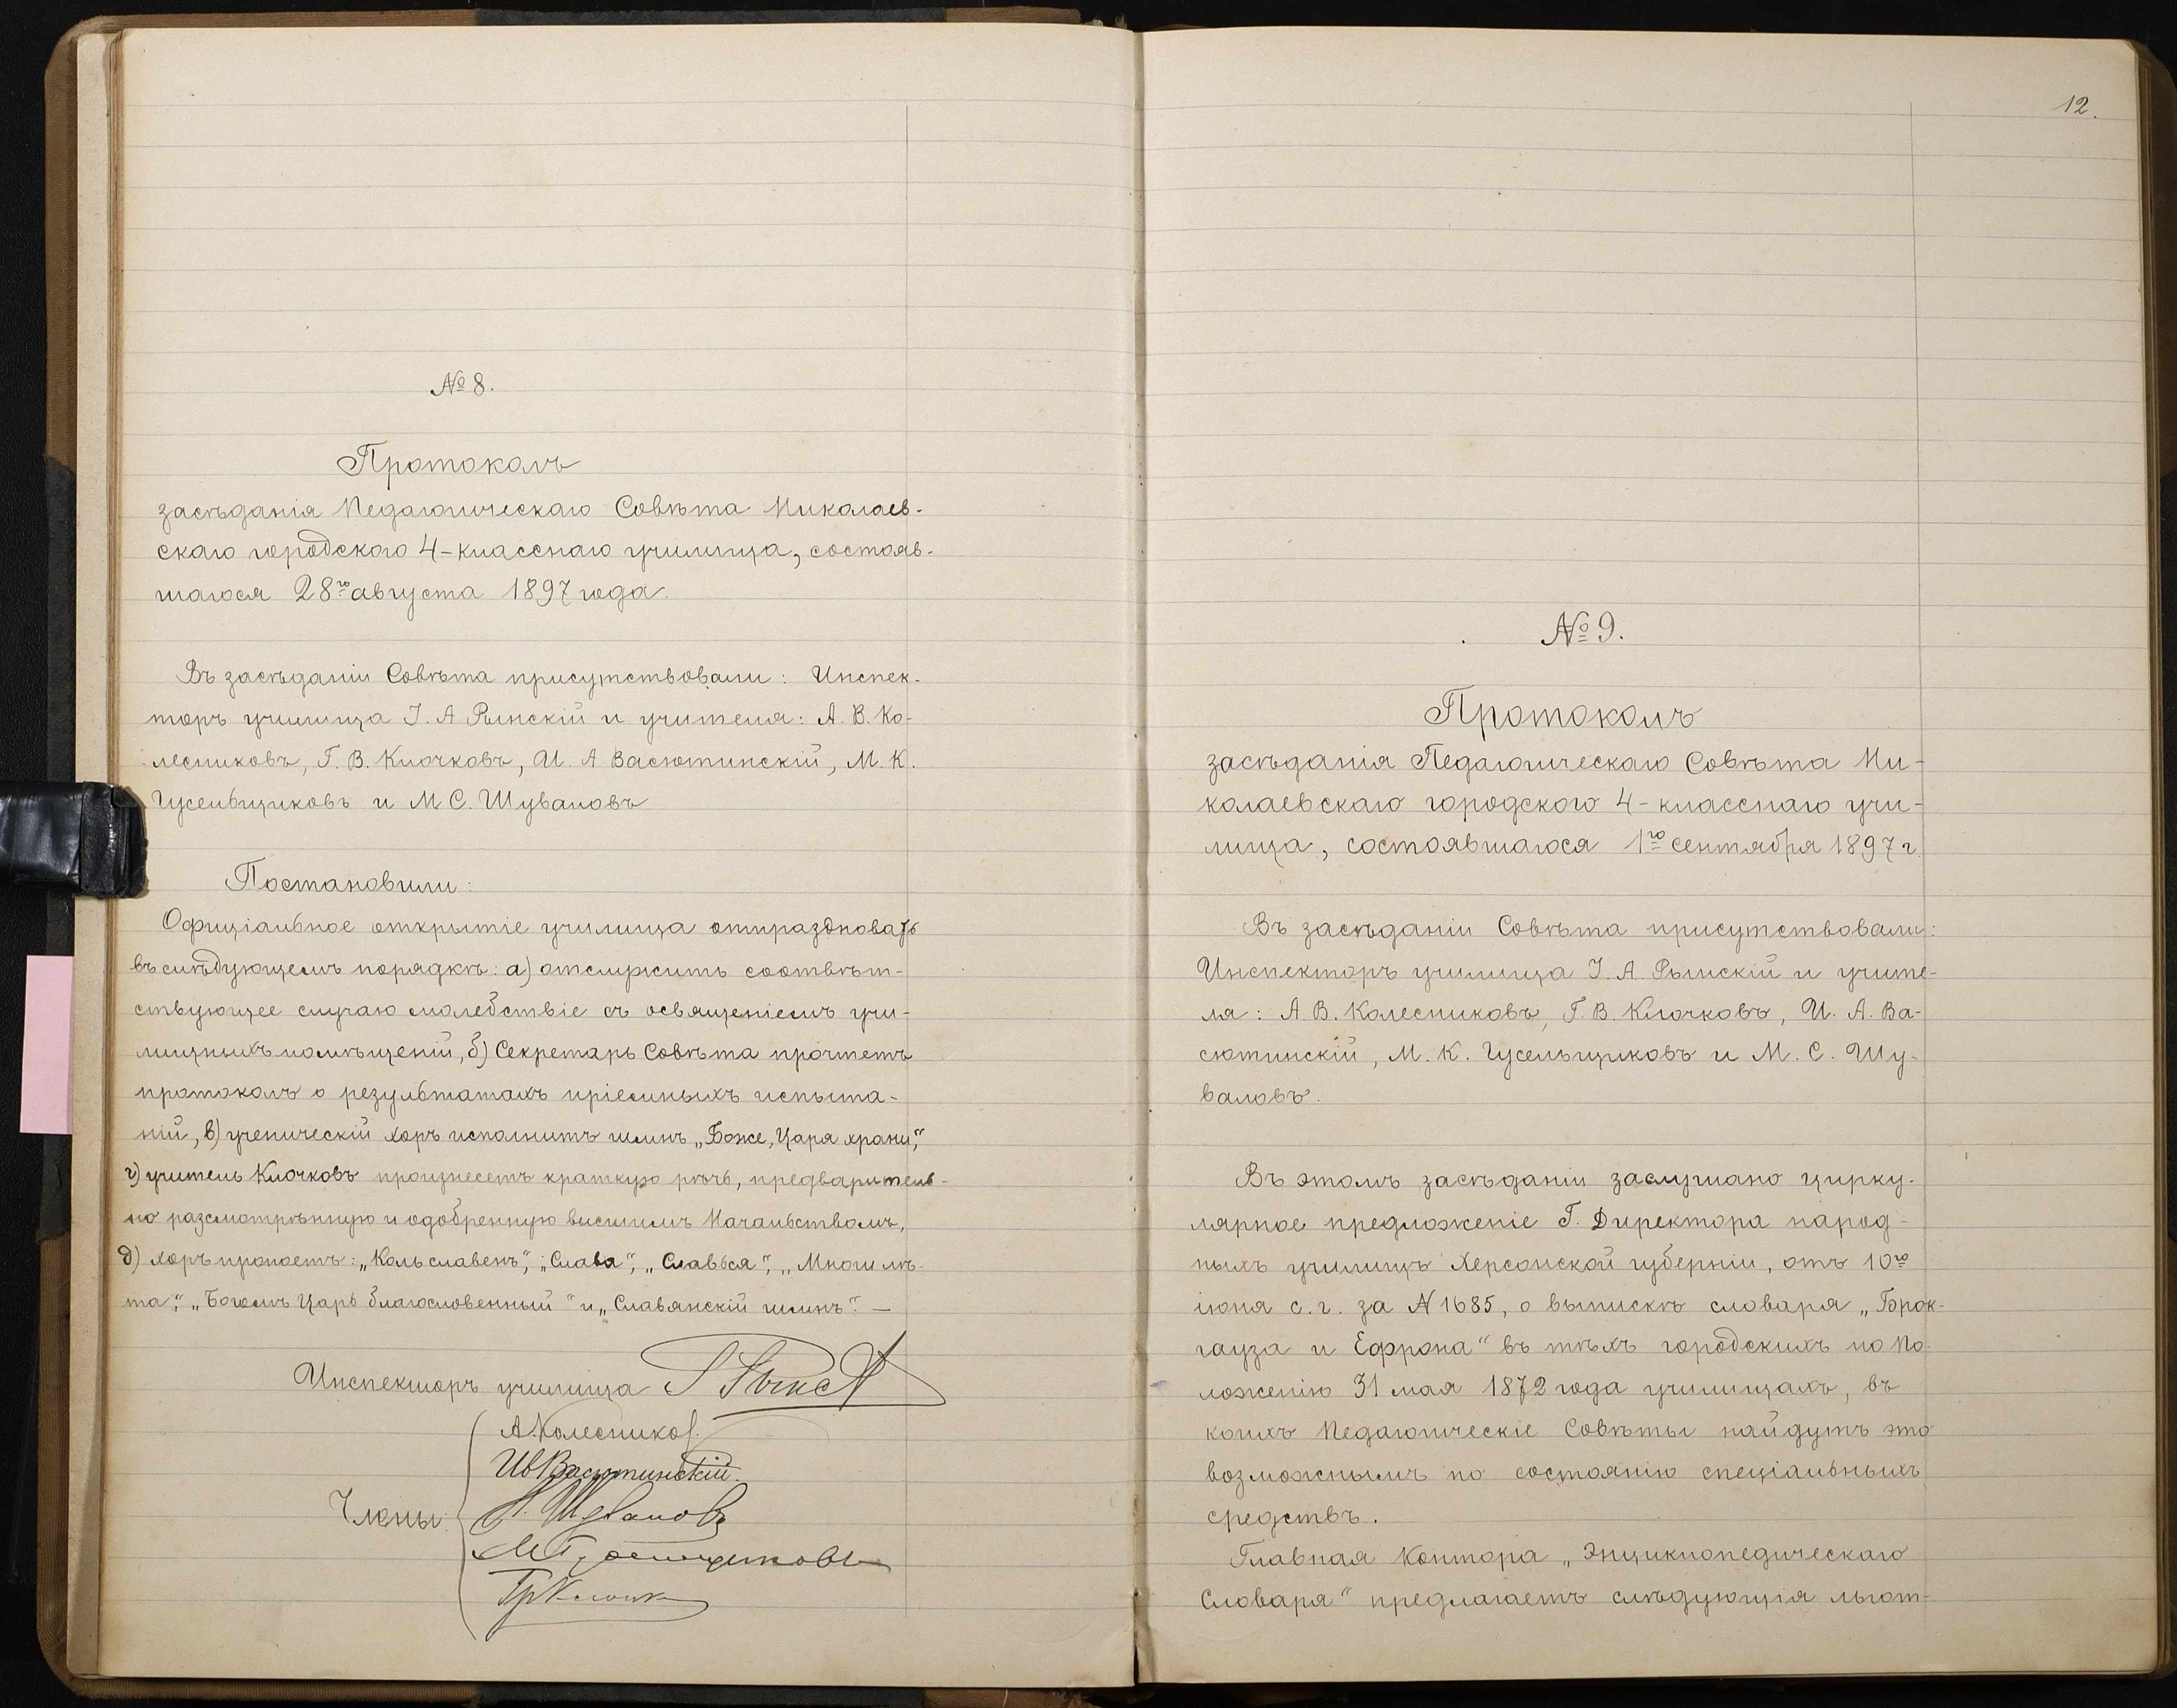 № 8.
Протоколъ
засѣданія Педагогическаго Совѣта Николаев-
скаго городского 4-класснаго училища, состояв-
шагося 28го августа 1897 года.
Въ засѣданіи Совѣта присутствовали: Инспек-
торъ училища І. А Рынскій и учителя: А. В. Ко-
лесниковъ, Г. В. Клочковъ, И. А Васютинскій, М. К.
Гусельщиковъ и М С. Шуваловъ
Постановили:
Офиціальное открытіе училища отпраздновать
въ слѣдующемъ порядкѣ: а) отслужить соотвѣт-
ствующее случаю молебствіе съ освященіемъ учи-
лищныхъ помѣщеній, б) Секретарь Совѣта прочтетъ
протоколъ о результатахъ пріемныхъ испыта-
ній, в) ученическій хоръ исполнитъ гимнъ „Боже, Царя храни,"
г) учитель Клочковъ произнесетъ краткую рѣчь, предваритель-
но разсмотрѣнную и одобренную высшимъ Начальствомъ,
д) хоръ пропоетъ: „Коль славенъ", „Слава", „Славься", „Многи лѣ-
та", „Богомъ Царь благословенный" и „Славянскій гимнъ". —
Инспекторъ училища
А. Колесников.
Ив Васютинскій.
Члены:
Шувалов
М Гусельщиковъ
Гр Клочк
12.
№ 9.
Протоколъ
засѣданія Педагогическаго Совѣта Ни-
колаевскаго городского 4-класснаго учи-
лища, состоявшагося 1го сентября 1897 г.
Въ засѣданіи Совѣта присутствовали:
Инспекторъ училища І. А. Рынскій и учите-
ля: А. В. Колесниковъ, Г. В. Клочковъ, И. А. Ва-
сютинскій, М. К. Гусельщиковъ и М. С. Шу-
валовъ.
Въ этомъ засѣданіи заслушано цирку-
лярное предложеніе Г. Директора народ-
ныхъ училищъ Херсонской губерніи, отъ 10го
іюня с. г. за N 1685, о выпискѣ словаря „Брок-
гауза и Ефрона" въ тѣхъ городскихъ по По-
ложенію 31 мая 1872 года училищахъ, въ
коихъ Педагогическіе Совѣты найдутъ это
возможнымъ по состоянію спеціальныхъ
средствъ.
Главная Контора „Энциклопедическаго
Словаря" предлагаетъ слѣдующія льгот-